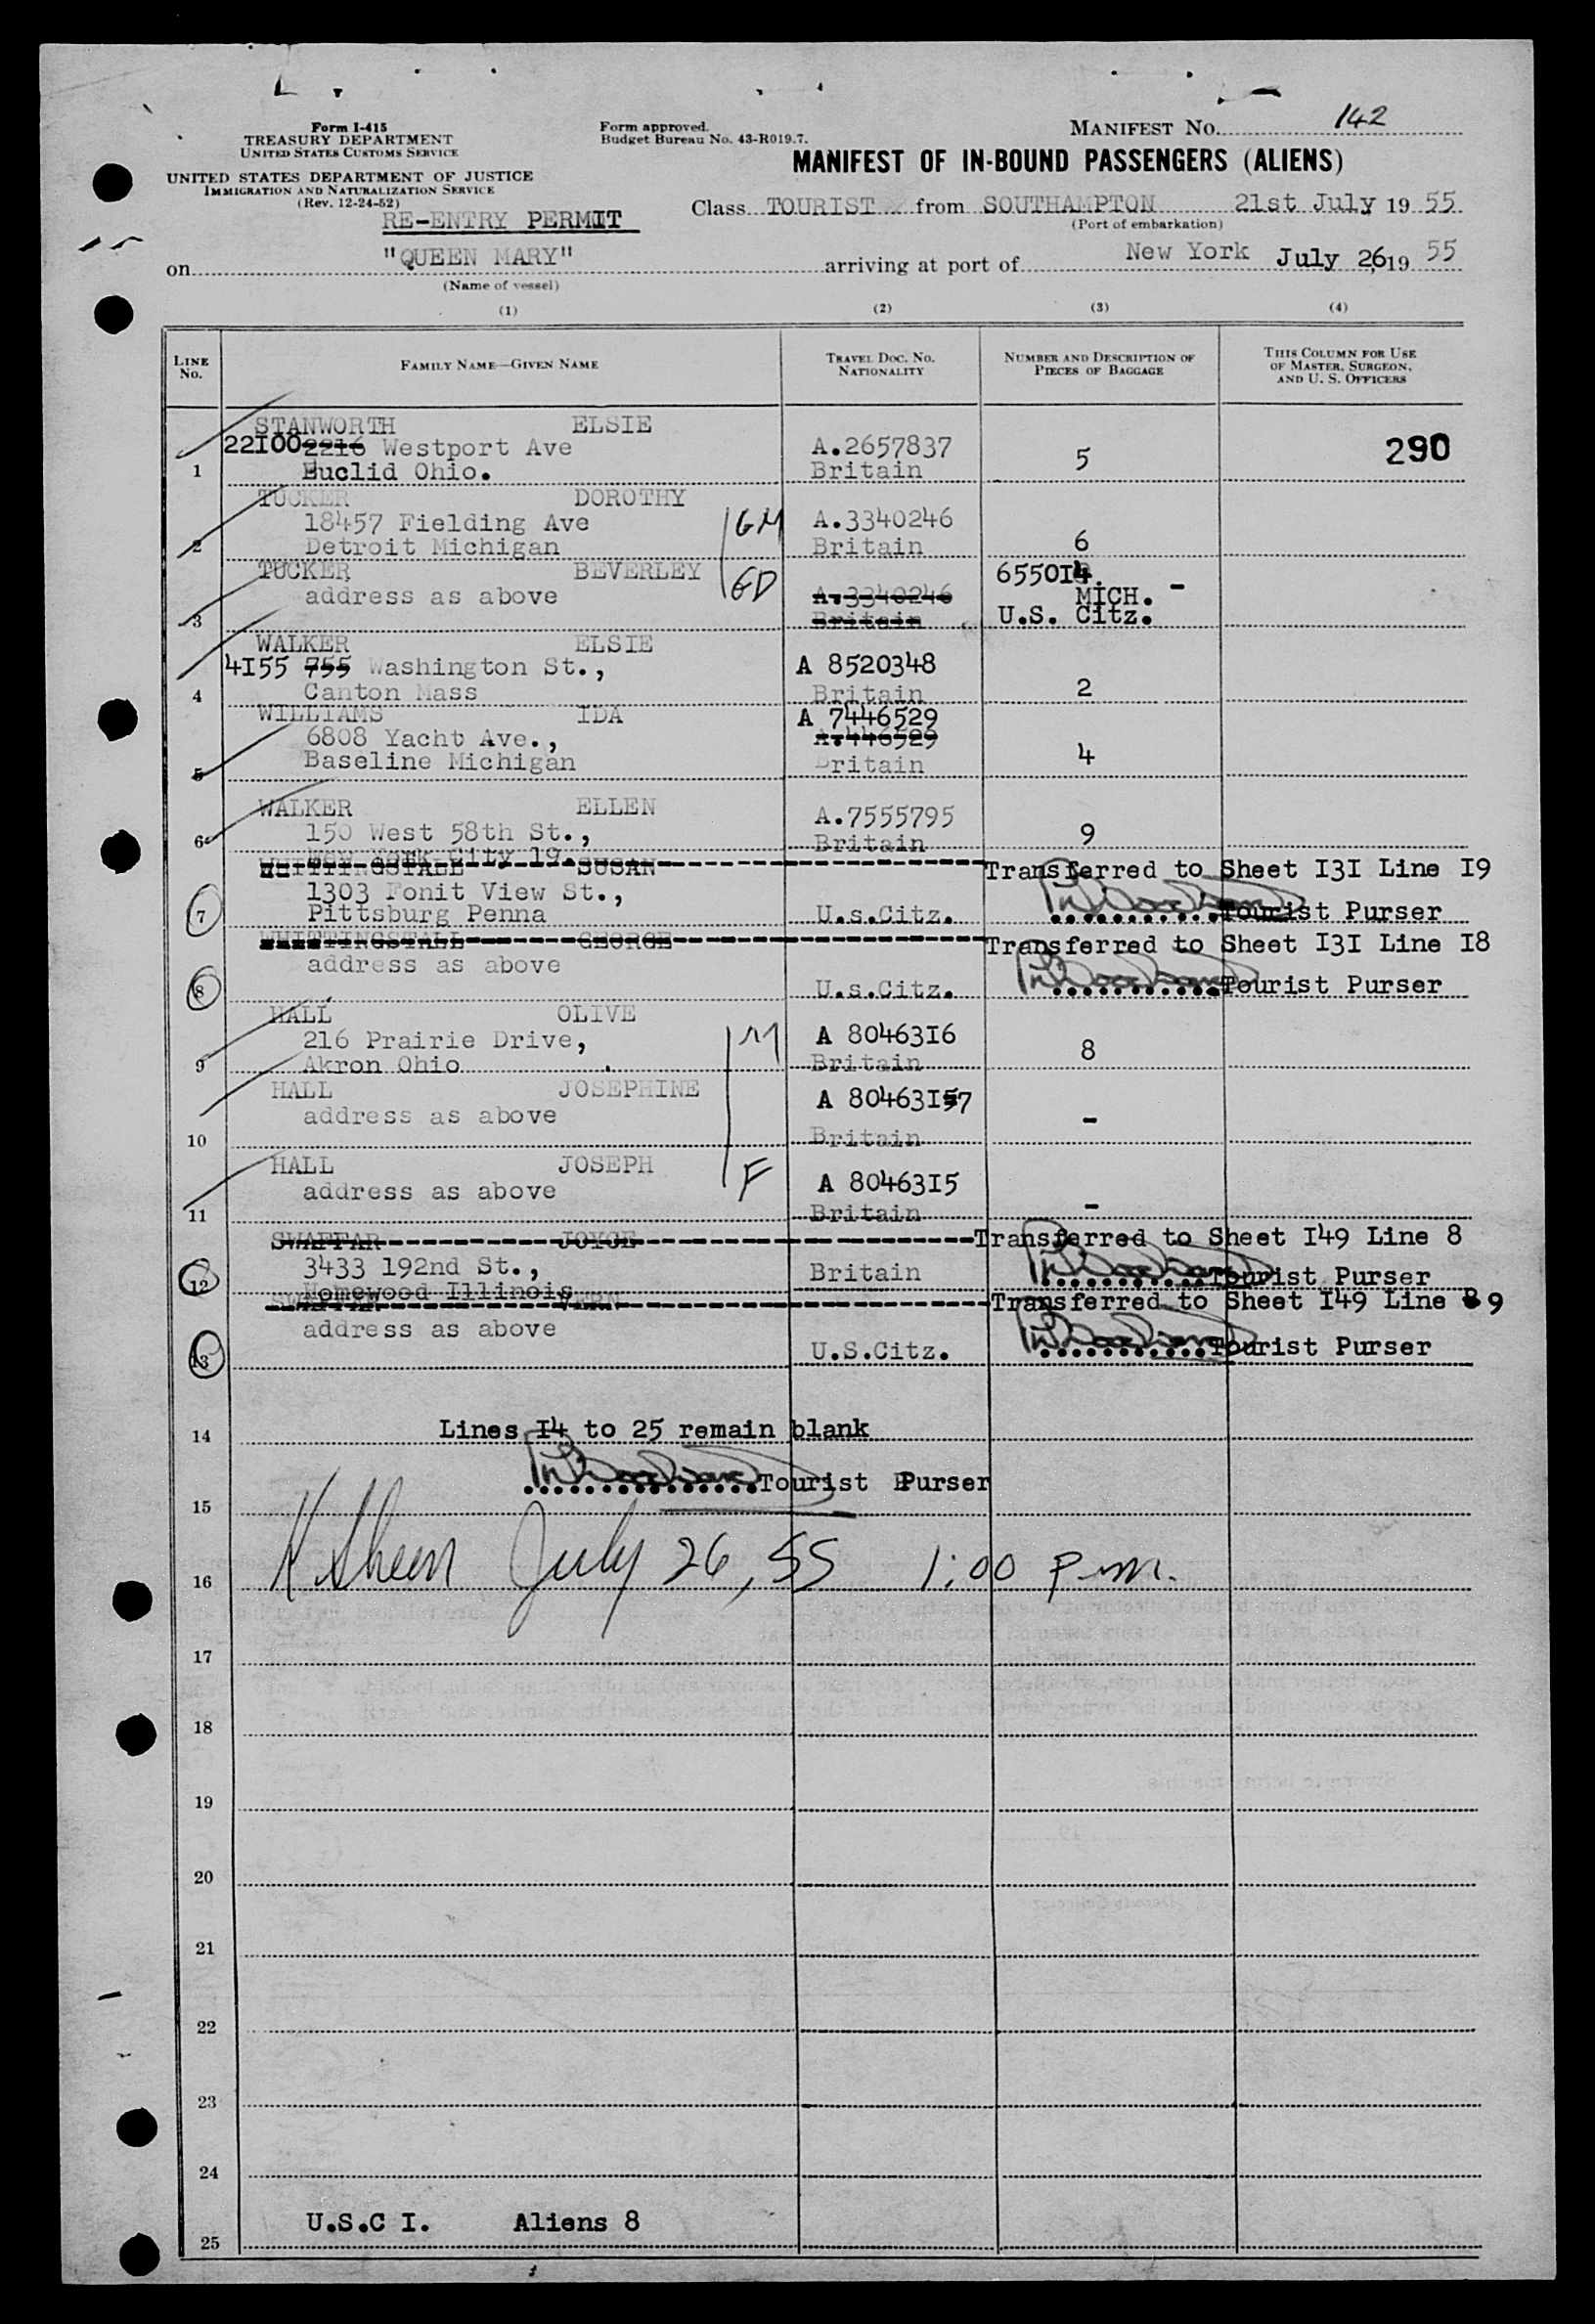 Form I-415
TREASURY DEPARTMENT
UNITED STATES CUSTOMS SERVICE
UNITED STATES DEPARTMENT OF JUSTICE
IMMIGRATION AND NATURALIZATION SERVICE
(Rev. 12-24-52)
Form approved.
Budget Bureau No. 43-R019.7.
MANIFEST No. 142
MANIFEST OF IN-BOUND PASSENGERS (ALIENS)
RE-ENTRY PERMIT
Class TOURIST from SOUTHAMPTON 21st July 19 55
(Port of embarkation)
on "QUEEN MARY" arriving at port of New York July 26, 19 55
(Name of vessel)
(1) (2) (3) (4)
LINE No. FAMILY NAME—GIVEN NAME TRAVEL DOC. NO. NATIONALITY NUMBER AND DESCRIPTION OF PIECES OF BAGGAGE THIS COLUMN FOR USE OF MASTER, SURGEON, AND U. S. OFFICERS
STANWORTH ELSIE
22I00 2216 Westport Ave A.2657837 290
1 Euclid Ohio. Britain 5
TUCKER DOROTHY
18457 Fielding Ave GM A.3340246
2 Detroit Michigan Britain 6
TUCKER BEVERLEY 6550I4
address as above GD A.3340246 MICH. -
3 Britain U.S. Citz.
WALKER ELSIE
4I55 755 Washington St., A 8520348
4 Canton Mass Britain 2
WILLIAMS IDA A 7446529
6808 Yacht Ave., A.446529
5 Baseline Michigan Britain 4
WALKER ELLEN A.7555795
6 150 West 58th St., Britain 9
New York City 19.
WHITTINGSTALL SUSAN Transferred to Sheet I3I Line I9
1303 Ponit View St.,
7 Pittsburg Penna U.s.Citz. Tourist Purser
WHITTINGSTALL GEORGE Transferred to Sheet I3I Line I8
address as above
8 U.s.Citz. Tourist Purser
HALL OLIVE
216 Prairie Drive, M A 80463I6 8
9 Akron Ohio Britain
HALL JOSEPHINE A 80463I57
address as above -
10 Britain
HALL JOSEPH
address as above F A 80463I5
11 Britain -
SWAFFAR JOYCE Transferred to Sheet I49 Line 8
12 3433 192nd St., Britain Tourist Purser
Homewood Illinois
SWAFFAR VERN Transferred to Sheet I49 Line 8 9
address as above
13 U.S.Citz. Tourist Purser
14 Lines I4 to 25 remain blank
Tourist Purser
15
16 K Sheen July 26, 55 1:00 p.m.
17
18
19
20
21
22
23
24
U.S.C I. Aliens 8
25